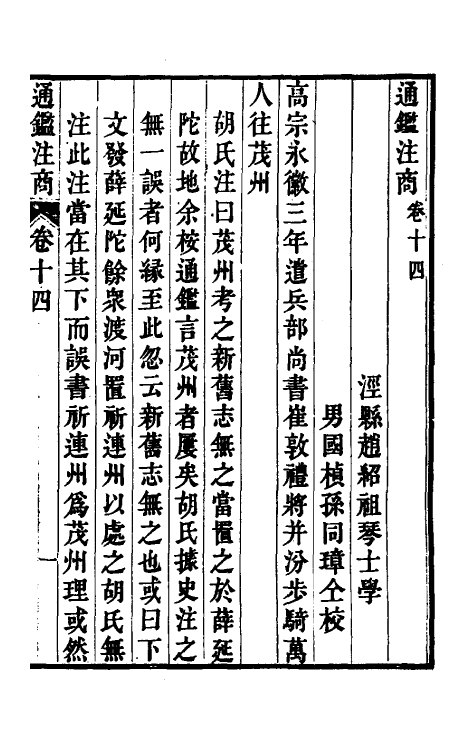 通鑑注商卷十四
涇縣趙紹祖琴士學
男國楨孫同璋仝校
高宗永徽三年遣兵部尚書崔敦禮將并汾步騎萬
人往茂州
胡氏注曰茂州考之新舊志無之當置之於薛延
陀故地余桉通鑑言茂州者屢矣胡氏據史注之
無一誤者何緣至此忽云新舊志無之也或曰下
文發薛延陀餘衆渡河置祈連州以處之胡氏無
注此注當在其下而誤書祈連州爲茂州理或然
通鑑注商 卷十四 一